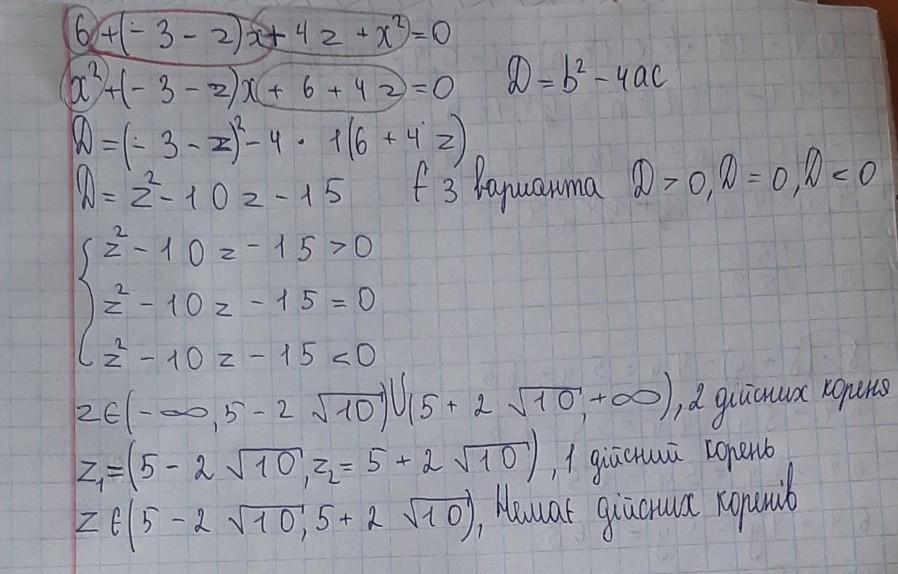 6+(-3-z)x+4z+x²=0
x²+(-3-z)x+6+4z=0 D=b²-4ac
D=(-3-z)²-4·1(6+4z)
D=z²-10z-15 Є 3 варианта D>0, D=0, D<0
z²-10z-15>0
z²-10z-15=0
z²-10z-15<0
zє(-∞, 5-2√10)U(5+2√10, +∞), 2 дійсних кореня
z₁=(5-2√10, z₂=5+2√10), 1 дійсний корень
zє(5-2√10, 5+2√10), Немає дійсних коренів